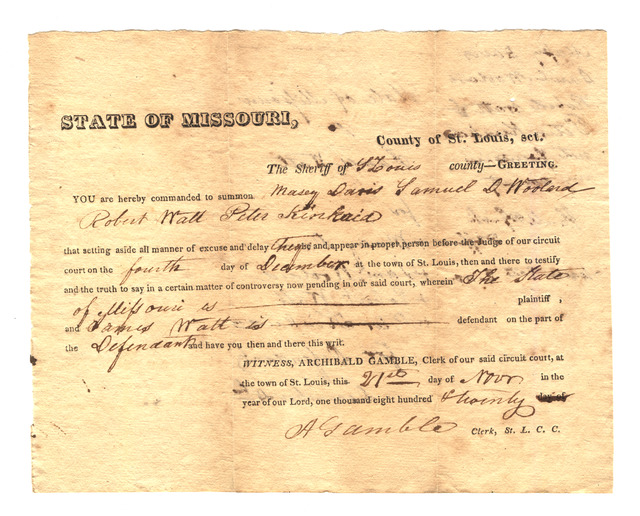 STATE OF MISSOURI,
County of St. Louis, sct.
The Sheriff of St Louis county—GREETING.
YOU are hereby commanded to summon Masey Davis Samuel D. Woolard
Robert Watt Peter Kinkaid
that setting aside all manner of excuse and delay they be, and appear in proper person before the Judge of our circuit
court on the fourth day of December at the town of St. Louis, then and there to testify
and the truth to say in a certain matter of controversy now pending in our said court, wherein The State
of Missouri is plaintiff,
and James Watt is defendant on the part of
the Defendant and have you then and there this writ.
WITNESS, ARCHIBALD GAMBLE, Clerk of our said circuit court, at
the town of St. Louis, this 21st day of Novr in the
year of our Lord, one thousand eight hundred & twenty day of
A Gamble Clerk, St. L. C. C.